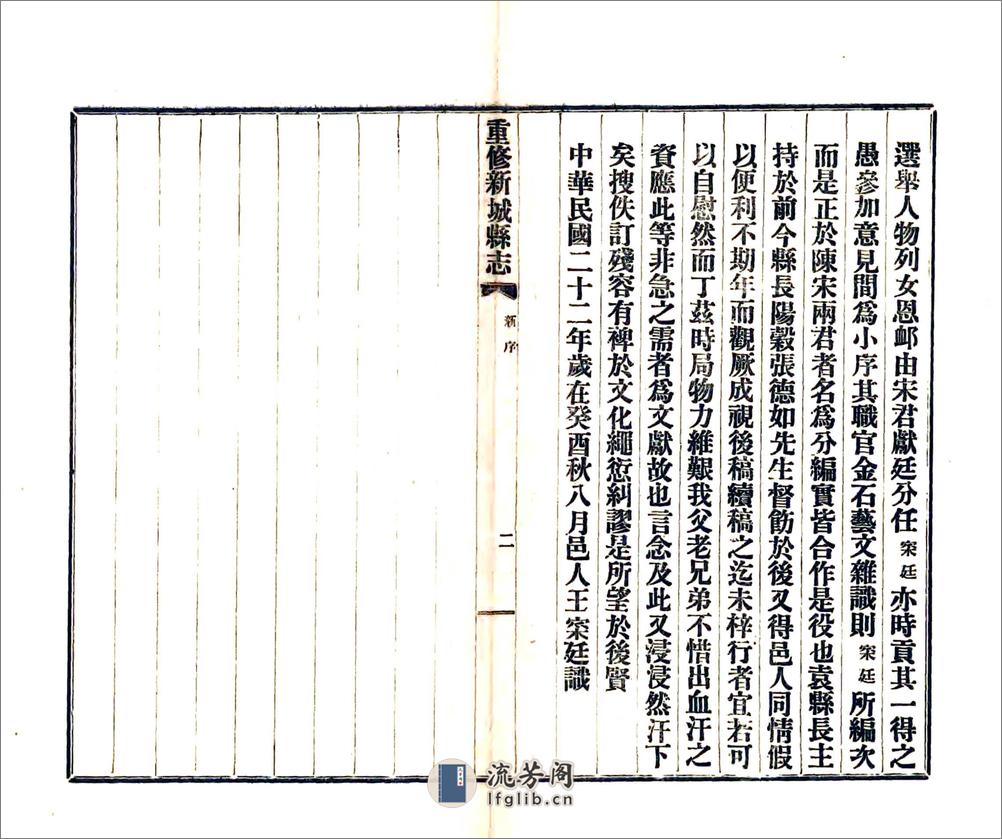 選舉人物列女恩卹由宋君獻廷分任宷廷亦時貢其一得之
愚參加意見間爲小序其職官金石藝文雜識則宷廷所編次
而是正於陳宋兩君者名爲分編實皆合作是役也袁縣長主
持於前今縣長陽穀張德如先生督飭於後又得邑人同情假
以便利不期年而觀厥成視後稿續稿之迄未梓行者宜若可
以自慰然而丁茲時局物力維艱我父老兄弟不惜出血汗之
資應此等非急之需者爲文獻故也言念及此又浸浸然汗下
矣搜佚訂殘容有裨於文化繩愆糾謬是所望於後賢
中華民國二十二年歲在癸酉秋八月邑人王宷廷識
重修新城縣志
新序
二
流芳阁
lfglib.cn